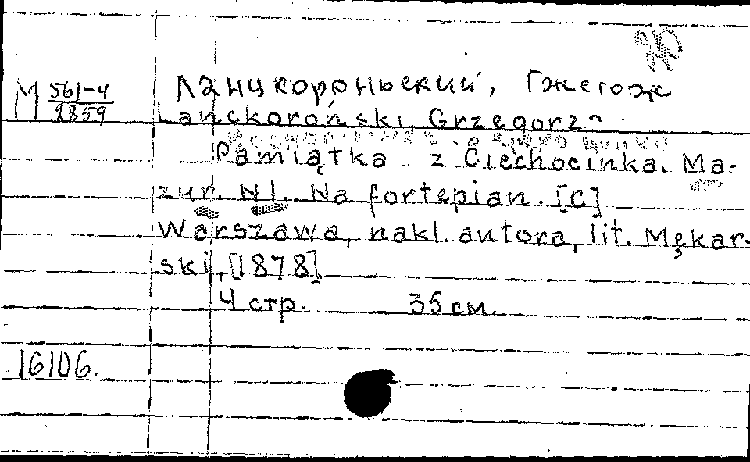 М 561-4
1859
Ланцкороньский, Гжегож
Lanckoroński, Grzegorz
Pamiątka z Ciechocinka. Ma-
zur. N 1. Na fortepian. [C]
Warszawa, nakl. autora, lit. Mękar-
ski, [1878]
4 стр. 35 см.
16106.